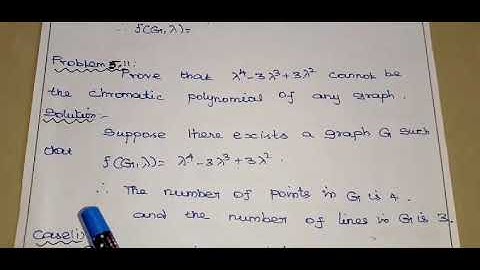 ∴ f(G, λ)=
Problem 5.11:
Prove that λ⁴-3λ³+3λ² cannot be
the chromatic polynomial of any graph.
Solution:-
Suppose there exists a graph G such
that f(G, λ)= λ⁴-3λ³+3λ².
∴ The number of points in G is 4.
and the number of lines in G is 3.
Case(i)